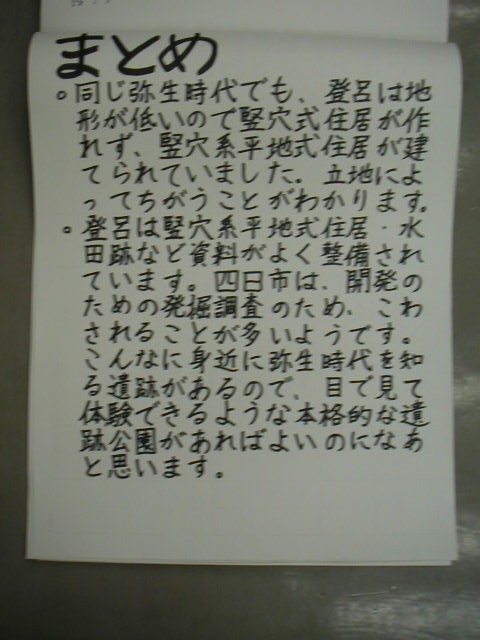 まとめ
。同じ弥生時代でも、登呂は地
形が低いので竪穴式住居が作
れず、竪穴系平地式住居が建
てられていました。立地によ
ってちがうことがわかります。
。登呂は竪穴系平地式住居・水
田跡など資料がよく整備され
ています。四日市は、開発の
ための発掘調査のため、こわ
されることが多いようです。
こんなに身近に弥生時代を知
る遺跡があるので、目で見て
体験できるような本格的な遺
跡公園があればよいのになあ
と思います。